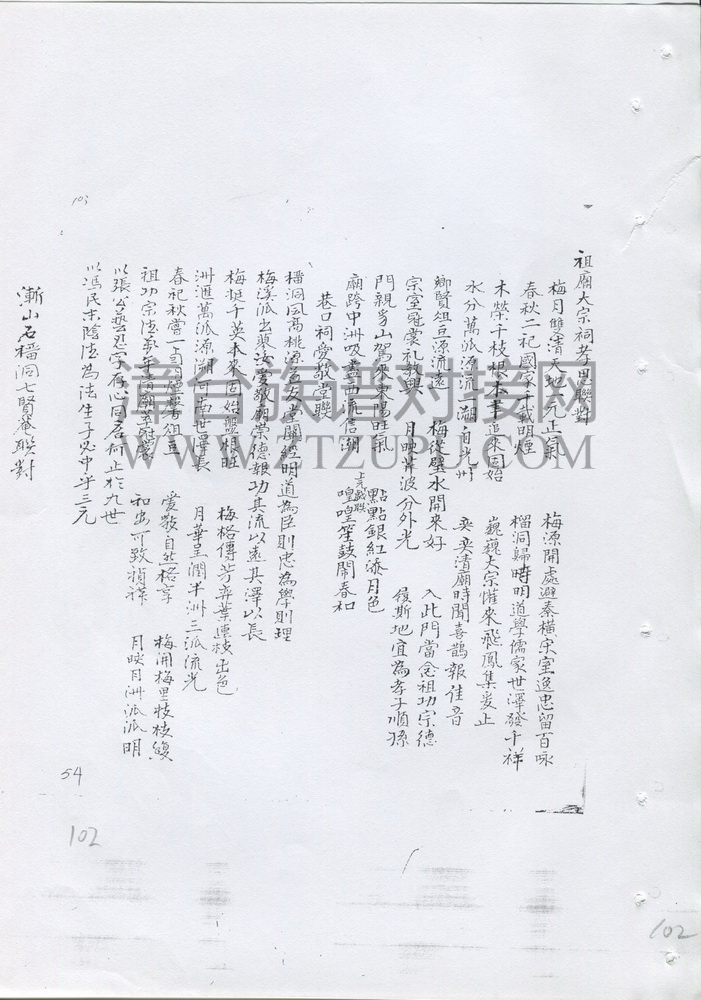 祖廟大宗祠孝思聯對
梅月雙清天地元正氣
梅源開處避秦橫宋室逸忠留百咏
春秋二祀國家千載明煙
榴洞歸時明道學儒家世澤發千祥
木榮千枝根本事追來固始
水分萬派源流一溯自光州
巍巍大宗惟來飛鳳集爰止
奕奕清廟時聞喜鵲報佳音
鄉賢俎豆源流遠
梅從壁水開來好
入此門當念祖功宗德
宗室冠裳礼教興
月映 波分外光
履斯地宜為孝子順孫
門親 山駕來東陽旺氣
點點銀紅添月色
廟跨中洲吸盡西流信潮
上元 聯
喤喤笙鼓鬧春和
巷口祠愛敬堂聯
榴洞風高桃源 友堂闡經明道為臣則忠為學則理
梅溪派出蓼汝愛敬廟崇德報功其流以遠其澤以長
梅挺千英本來固始盤根旺
梅格傳芳弈葉連枝出色
洲滙萬派源溯河南世 長
月華呈潤半洲三派流光
春祀秋嘗一 馨俎豆
愛敬自然格享
梅開梅里枝枝馥
祖功宗德 清廟 冠裳
和忠可致禎祥
月映月洲派派明
以張公藝忍字存心同居何止於九世
以馮民 陰德為法生子必中乎三元
漸山石榴洞七賢菴聯對
103
54
102
102
章台族譜对接网
WWW.ZTZUPU.COM